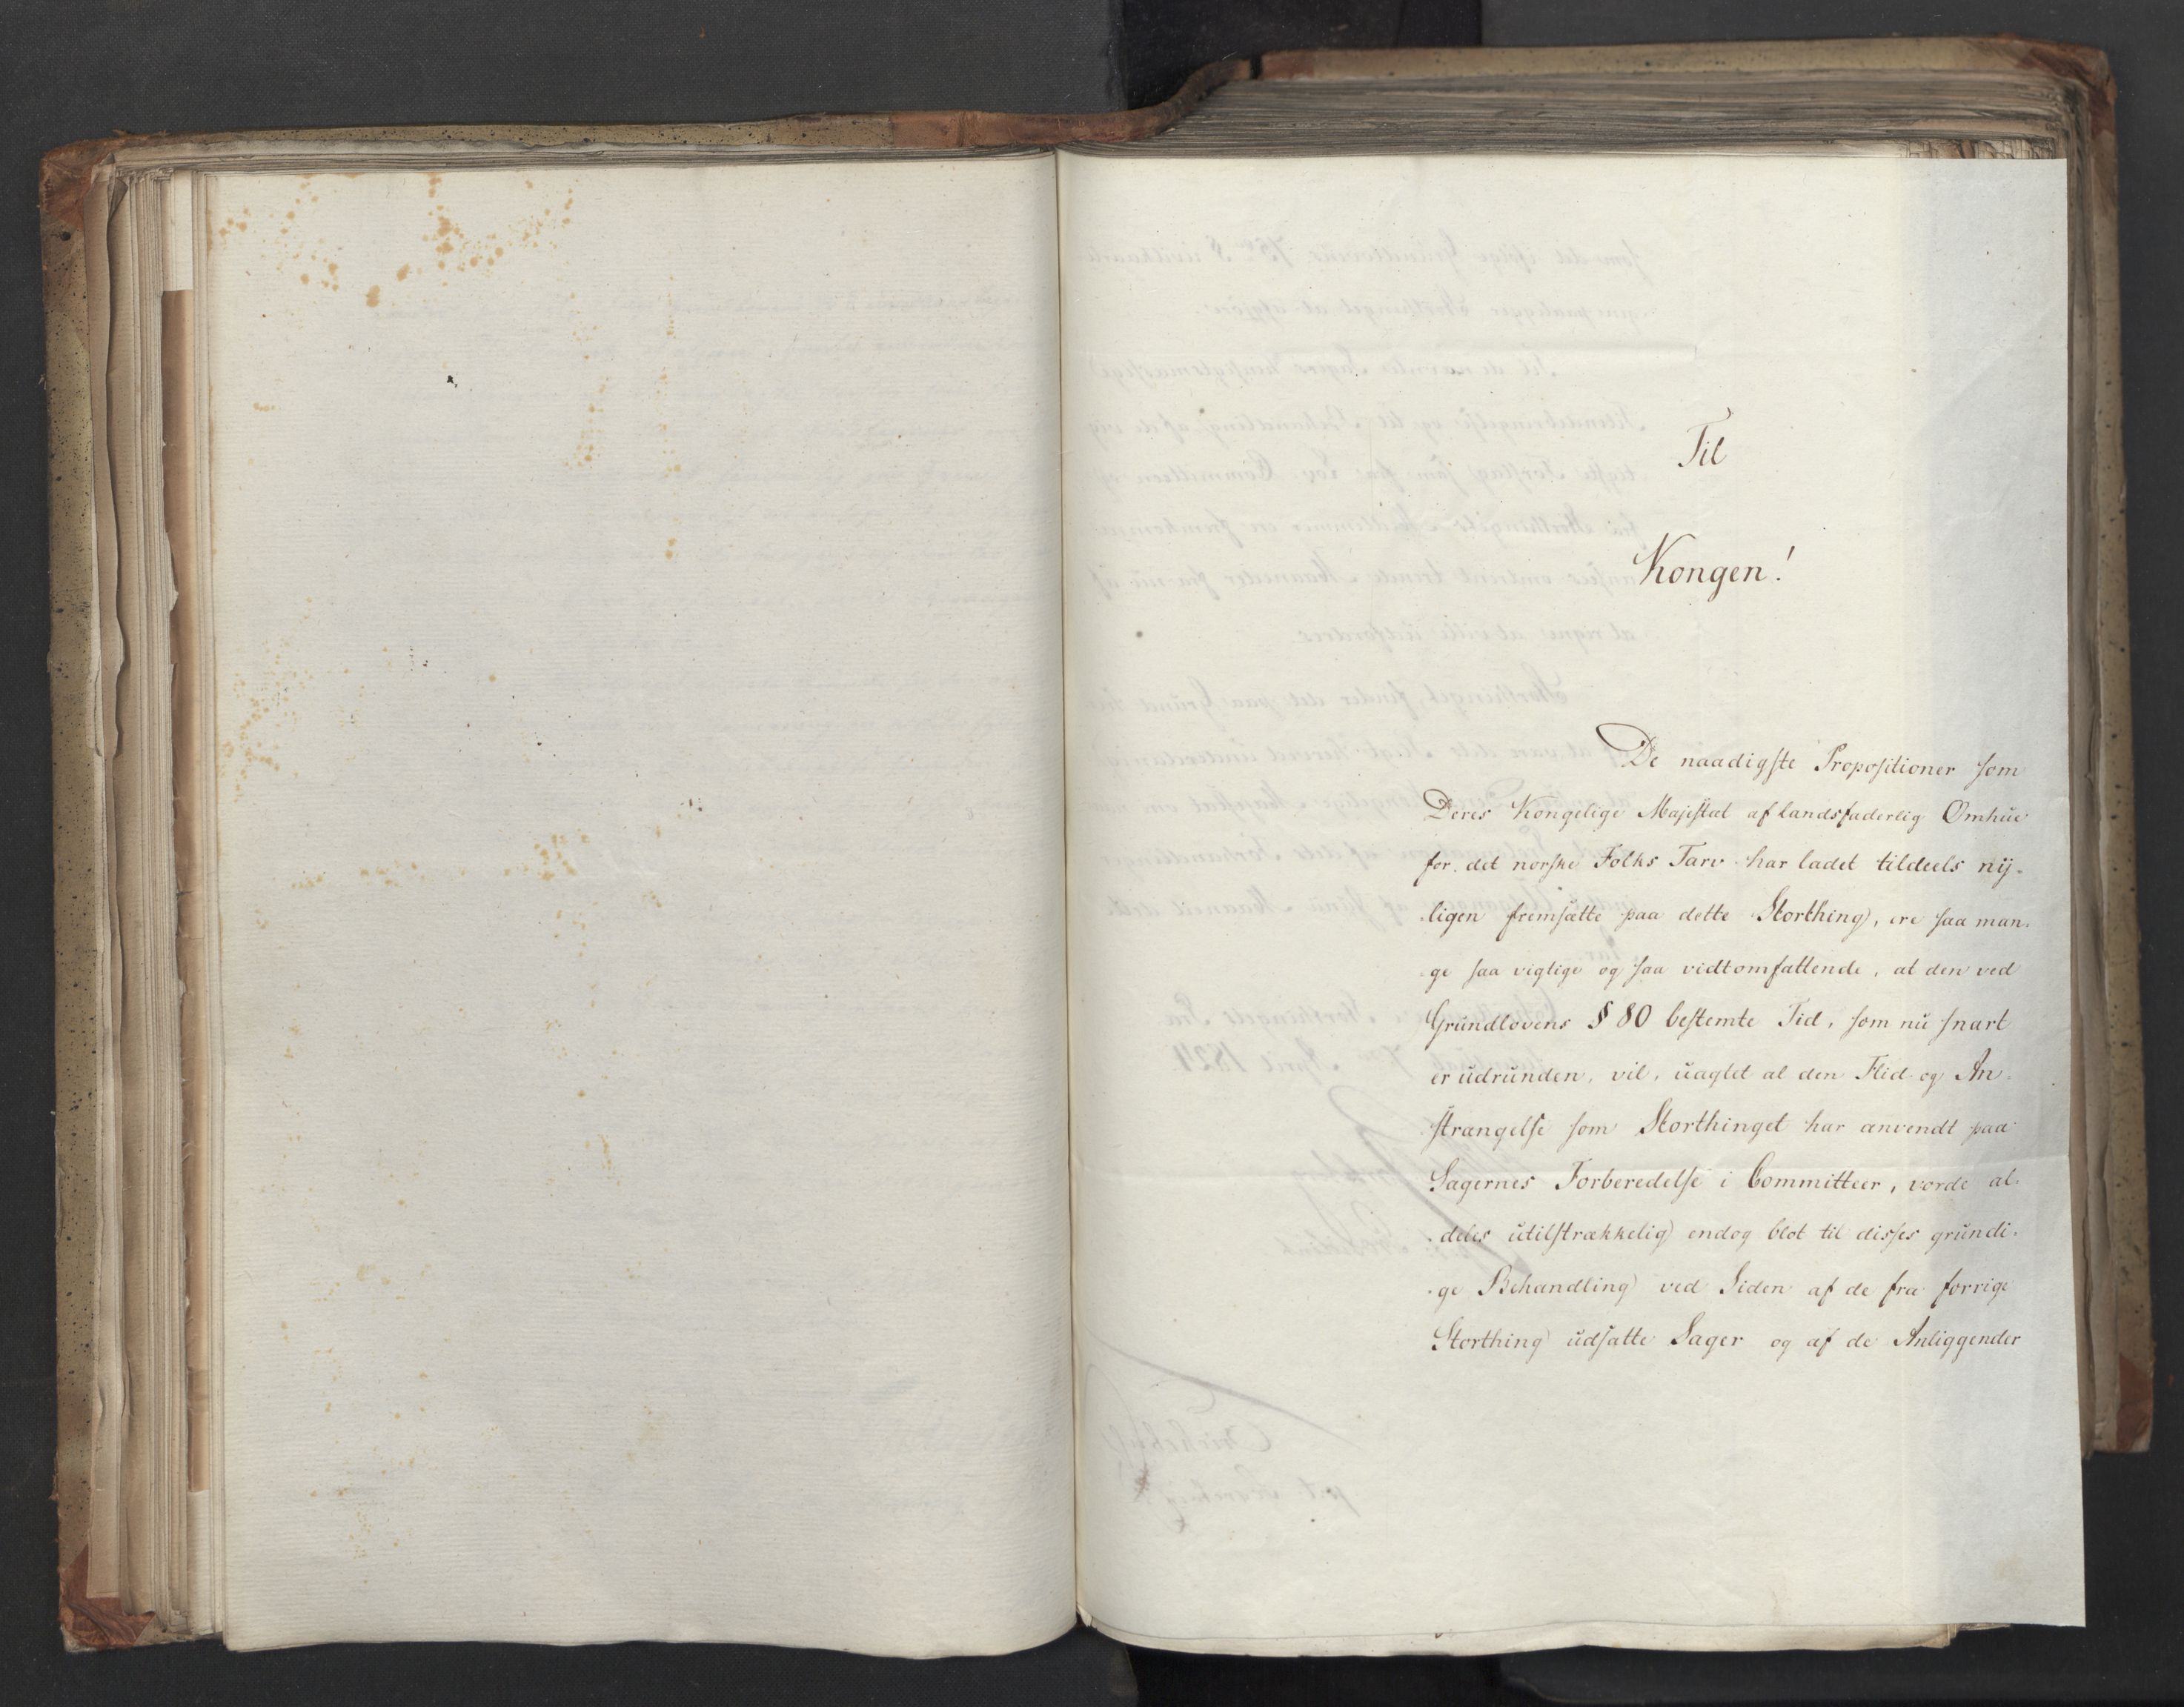 Til
Kongen!
De naadigste Propositioner som
Deres Kongelige Majestæt af landsfaderlig Omhue
for det norske Folks Tarv har ladet tildeels ny-
ligen fremsætte paa dette Storthing, ere saa man-
ge saa vigtige og saa vidtomfattende, at den ved
Grundlovens § 80 bestemte Tid, som nu snart
er udrunden, vil, uagtet al den Flid og An-
strængelse som Storthinget har anvendt paa
Sagernes Forberedelse i Committeer, vorde al-
deles utilstrækkelig endog blot til disses grundi-
ge Behandling ved Siden af de fra forrige
Storthing udsatte Sager og af de Anliggender